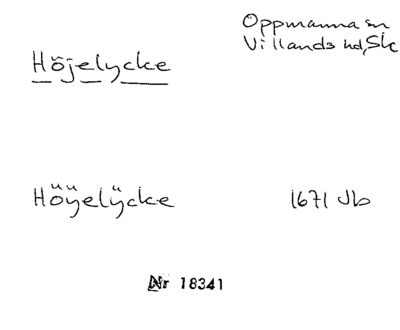 Oppmanna sn
Villands hd, Sk
Höjelycke
Höÿelÿcke 1671 Jb
Nr 18341